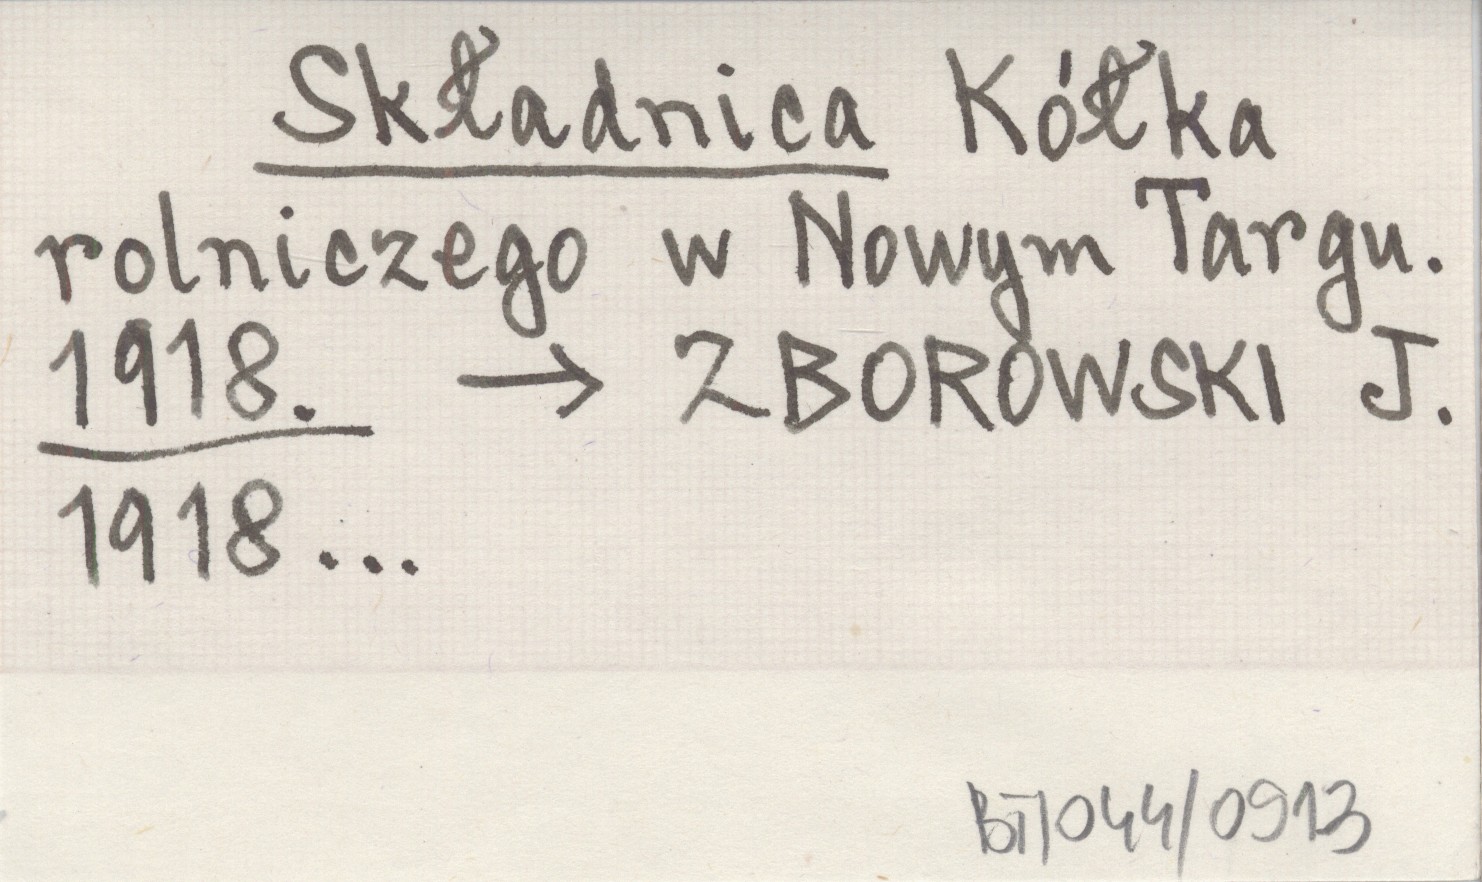 Składnica Kółka
rolniczego w Nowym Targu.
1918. → ZBOROWSKI J.
1918...
BT/044/0913